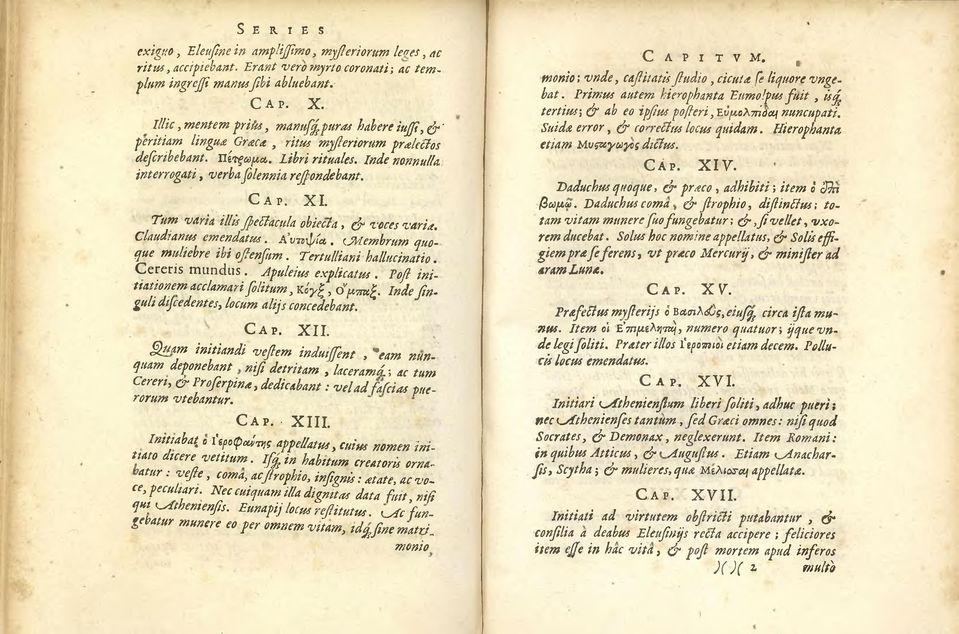 SERIES
exiguo, Eleusine in amplissimo, mysteriorum leges, ac
ritus, accipiebant. Erant verò myrto coronati; ac tem-
plum ingressi manus sibi abluebant.
CAP. X.
Illic, mentem priùs, manusq́; puras habere iussi, &
peritiam linguæ Græcæ, ritus mysteriorum prælectos
describebant. Πέτρωμα. Libri rituales. Inde nonnulla
interrogati, verba solennia respondebant.
CAP. XI.
Tum varia illis spectacula obiecta, & voces variæ.
Claudianus emendatus. Αὐτοψία. Membrum quo-
que muliebre ibi ostensum. Tertulliani hallucinatio.
Cereris mundus. Apuleius explicatus. Post ini-
tiationem acclamari solitum, Κόγξ, Ὄμπαξ. Inde sin-
guli discedentes, locum alijs concedebant.
CAP. XII.
Quam initiandi vestem induissent, eam nun-
quam deponebant, nisi detritam, laceramq́;; ac tum
Cereri, & Proserpinæ, dedicabant: vel ad fascias pue-
rorum vtebantur.
CAP. XIII.
Initiabat ὁ Ἱεροφάντης appellatus, cuius nomen ini-
tiato dicere vetitum. Isq́; in habitum creatoris orna-
batur: veste, comâ, ac strophio, insignis: ætate, ac vo-
ce, peculiari. Nec cuiquam illa dignitas data fuit, nisi
qui Atheniensis. Eunapij locus restitutus. Ac fun-
gebatur munere eo per omnem vitam, idq́; sine matri-
monio,
CAPITVM.
monio; vnde, castitatis studio, cicutæ se liquore vnge-
bat. Primus autem hierophanta Eumolpus fuit, isq́;
tertius; & ab eo ipsius posteri, Εὐμολπίδαι nuncupati.
Suidæ error, & correctus locus quidam. Hierophanta
etiam Μυσταγωγὸς dictus.
CAP. XIV.
Daduchus quoque, & præco, adhibiti; item ὁ ἐπὶ
βωμῷ. Daduchus comâ, & strophio, distinctus; to-
tam vitam munere suo fungebatur; &, si vellet, vxo-
rem ducebat. Solus hoc nomine appellatus, & Solis effi-
giem præ se ferens, vt præco Mercurij, & minister ad
aram Lunæ.
CAP. XV.
Præfectus mysterijs ὁ Βασιλεὺς, eiusq́; circa ista mu-
nus. Item οἱ Ἐπιμεληταὶ, numero quatuor; ijque vn-
de legi soliti. Præter illos Ἱεροποιοὶ etiam decem. Pollu-
cis locus emendatus.
CAP. XVI.
Initiari Atheniensium liberi soliti, adhuc pueri;
nec Athenienses tantùm, sed Græci omnes: nisi quod
Socrates, & Demonax, neglexerunt. Item Romani:
in quibus Atticus, & Augustus. Etiam Anachar-
sis, Scytha; & mulieres, quæ Μέλισσαι appellatæ.
CAP. XVII.
Initiati ad virtutem obstricti putabantur, &
consilia à deabus Eleusinijs recta accipere; feliciores
item esse in hâc vitâ, & post mortem apud inferos
)( )( 2 multò